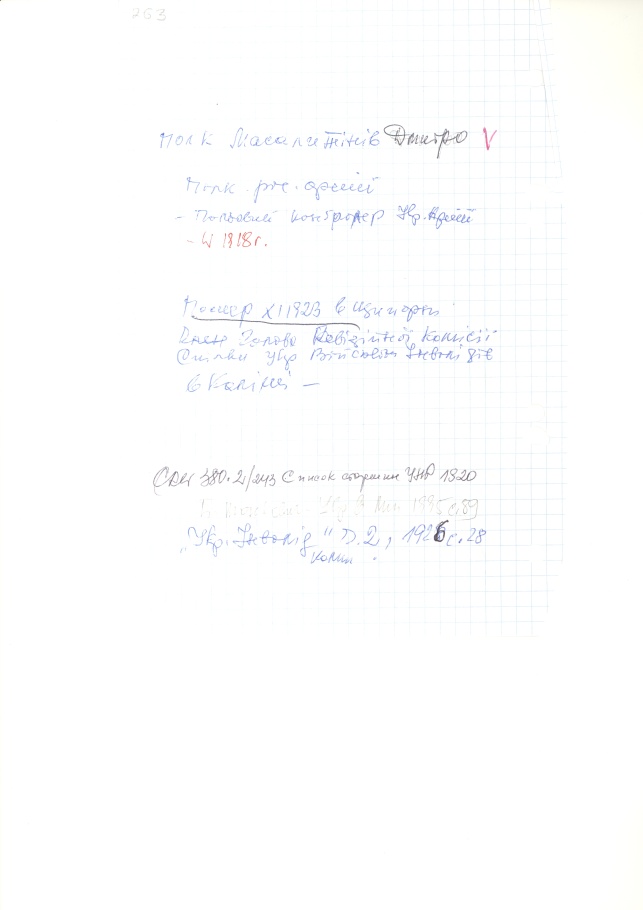 763
Полк Масалгетінів Дмитро V
Полк. рос. армії
- Польовий контролер Укр. Армії
- W 1918 г.
Помер XI 1923 в Щипорні
Голова Ревізійної Комісії
Спілки Укр Військових Інвалідів
в Каліші —
380.2/243 Список старшин УНР 1920
Укр 1995 с. 89
„Укр. Інвалід" Д. 2, 1926 с. 28
Каліш.